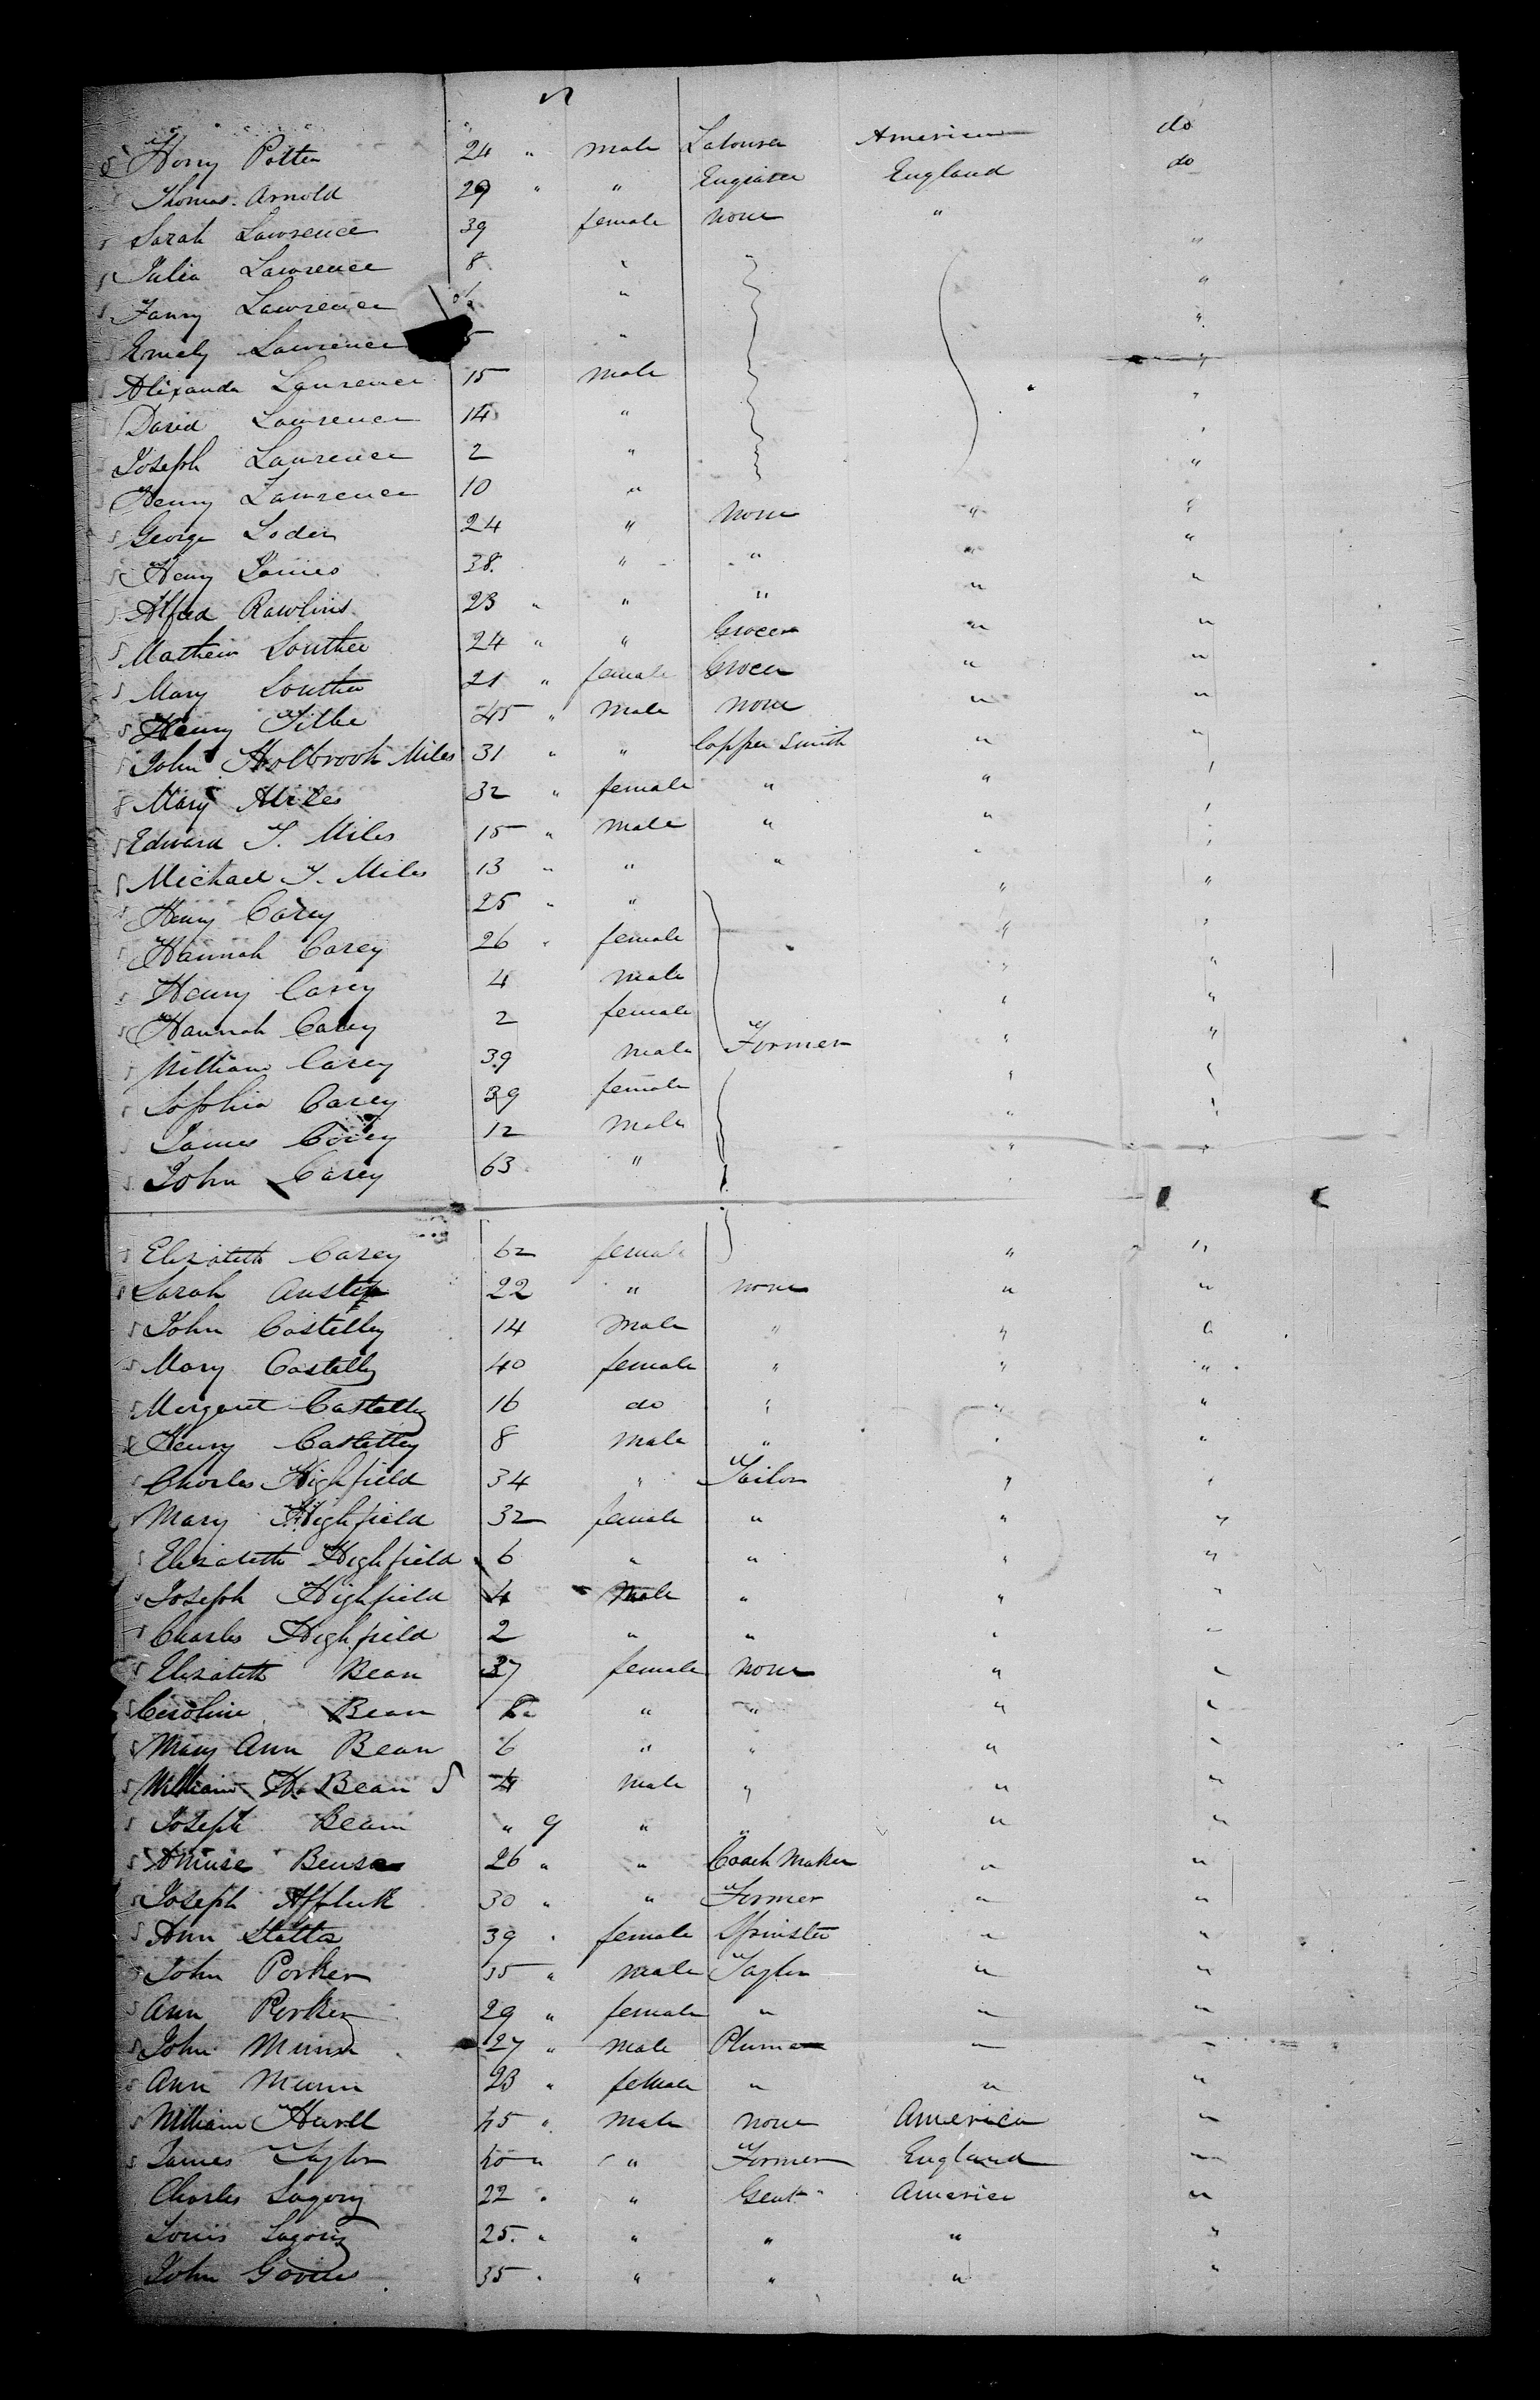 Harry Potter 24 " male Labourer America do
Thomas Arnold 29 " " Engineer England do
Sarah Lawrence 39 female none "
Julia Lawrence 8 " " "
Fanny Lawrence " "
Emely Lawrence 5 " "
Alixander Lawrence 15 male "
David Lawrence 14 " "
Joseph Lawrence 2 " "
Henry Lawrence 10 " "
George Loder 24 " none " "
Henry James 38 " " " "
Alfred Rawlins 23 " " " " "
Mathew Souther 24 " " Grocer " "
Mary Souther 21 " female Grocer " "
Henry 45 " male none " "
John Holbrook Miles 31 " " Copper Smith " "
Mary Miles 32 " female " " "
Edward T. Miles 15 " male " " "
Michael T. Miles 13 " " " " "
Henry Carey 25 " " " "
Hannah Carey 26 " female " "
Henry Carey 4 male " "
Hannah Carey 2 female " "
William Carey 39 male Farmer " "
Sophia Carey 39 female " "
James Carey 12 male " "
John Carey 63 " " "
Elizabeth Carey 62 female " "
Sarah Austin 22 " none " "
John Costelly 14 male " " "
Mary Costelly 40 female " " "
Margaret Costelly 16 do " " "
Henry Costelly 8 male " " "
Charles Highfield 34 " Tailor " "
Mary Highfield 32 female " " "
Elizabeth Highfield 6 " " " "
Joseph Highfield 4 male " " "
Charles Highfield 2 " " " "
Elizabeth Bean 37 female none " "
Caroline Bean " " " "
Mary Ann Bean 6 " " " "
William H. Bean 4 male " " "
Joseph Bean " 9 " " " "
Benson 26 " " Coach Maker " "
Joseph Affleck 30 " " Farmer " "
Ann 39 " female Spinster " "
John Parker 35 " male Taylor " "
Ann Parker 29 " female " " "
John Munn 27 " male Plumer " "
Ann Munn 23 " female " " "
William 45 " male none America "
James Taylor 40 " " Farmer England "
Charles 22 " " Gent America "
Louis 25 " " " " "
John 35 " " " " "